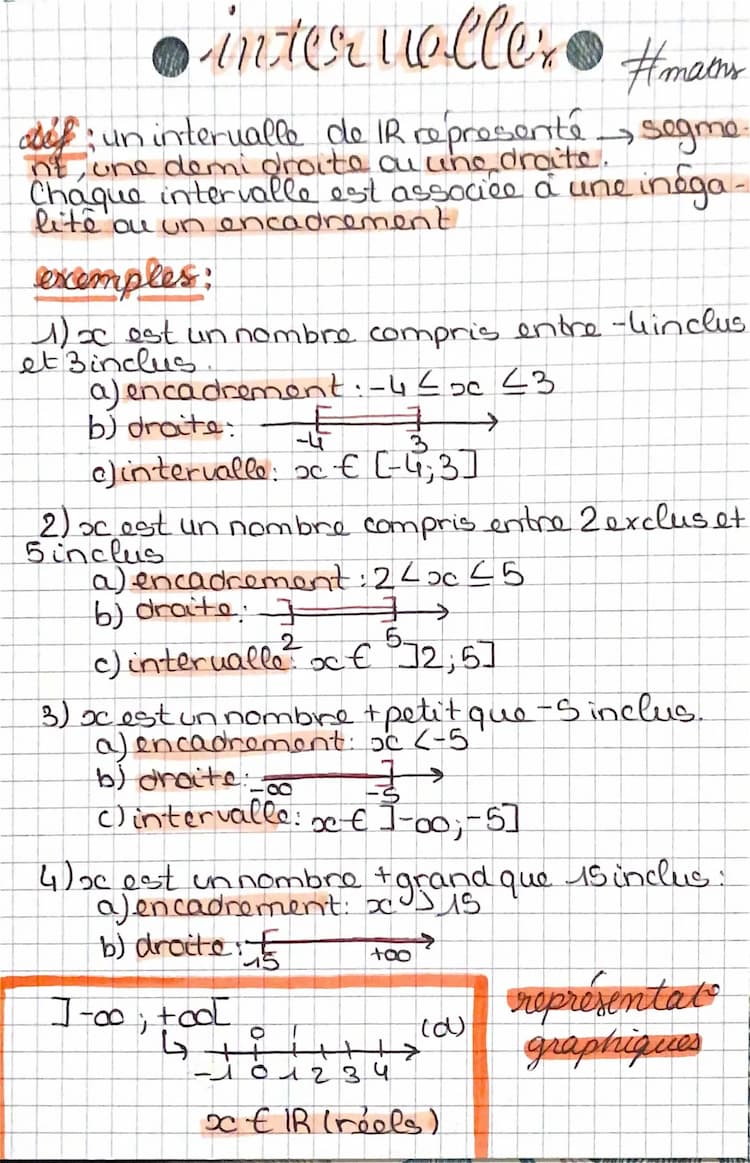 intervalles
#maths
déf : un intervalle de IR représenté → segme-
nt, une demi droite ou une droite.
Chaque intervalle est associée à une inéga-
lité ou un encadrement
exemples :
1) x est un nombre compris entre -4 inclus
et 3 inclus.
a) encadrement : -4 ≤ x ≤ 3
b) droite :
-4 3
c) intervalle : x ∈ [-4 ; 3]
2) x est un nombre compris entre 2 exclus et
5 inclus
a) encadrement : 2 < x ≤ 5
b) droite :
2 5
c) intervalle : x ∈ ]2 ; 5]
3) x est un nombre + petit que -5 inclus.
a) encadrement : x < -5
b) droite :
-∞ -5
c) intervalle : x ∈ ]-∞ ; -5]
4) x est un nombre + grand que 15 inclus :
a) encadrement : x > 15
b) droite :
15 +∞
]-∞ ; +∞[
↳ 0 1 (d)
-1 0 1 2 3 4
x ∈ IR (réels)
représentat°
graphiques